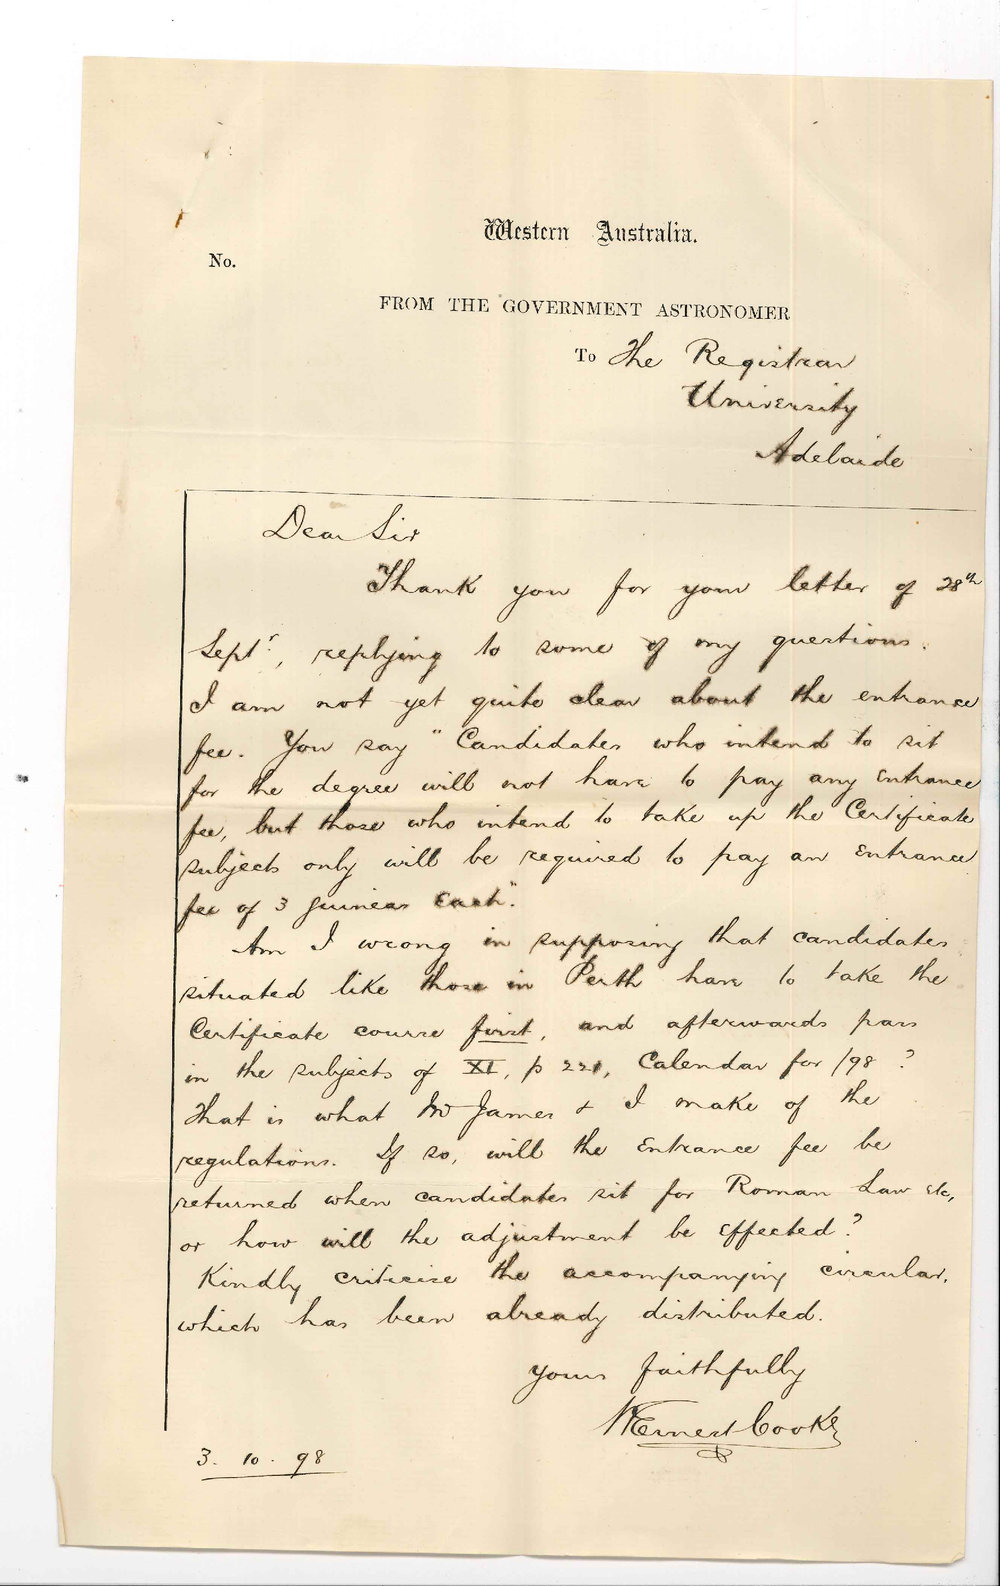 Western Australia.
No.
FROM THE GOVERNMENT ASTRONOMER
To The Registrar
University
Adelaide
Dear Sir
Thank you for your letter of 28th
Septr, replying to some of my questions.
I am not yet quite clear about the entrance
fee. You say "Candidates who intend to sit
for the degree will not have to pay any Entrance
fee, but those who intend to take up the Certificate
subjects only will be required to pay an Entrance
fee of 3 guineas each".
Am I wrong in supposing that candidates
situated like those in Perth have to take the
Certificate course first, and afterwards pass
in the subjects of XI, p 221, Calendar for /98?
That is what Mr James & I make of the
regulations. If so, will the Entrance fee be
returned when candidates sit for Roman Law etc,
or how will the adjustment be effected?
Kindly criticise the accompanying circular,
which has been already distributed.
Yours faithfully
W Ernest Cooke
3. 10. 98